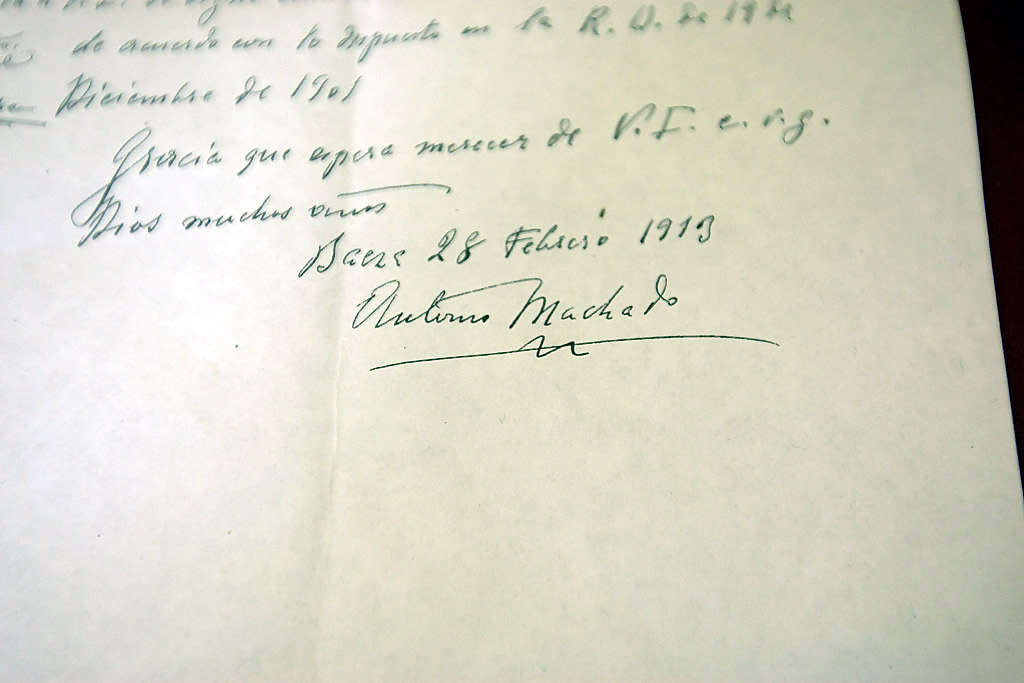 de acuerdo con lo dispuesto en la R. O. de 19 de
Diciembre de 1901
Gracia que espera merecer de V. I. c. v. g.
Dios muchos años
Baeza 28 Febrero 1913
Antonio Machado